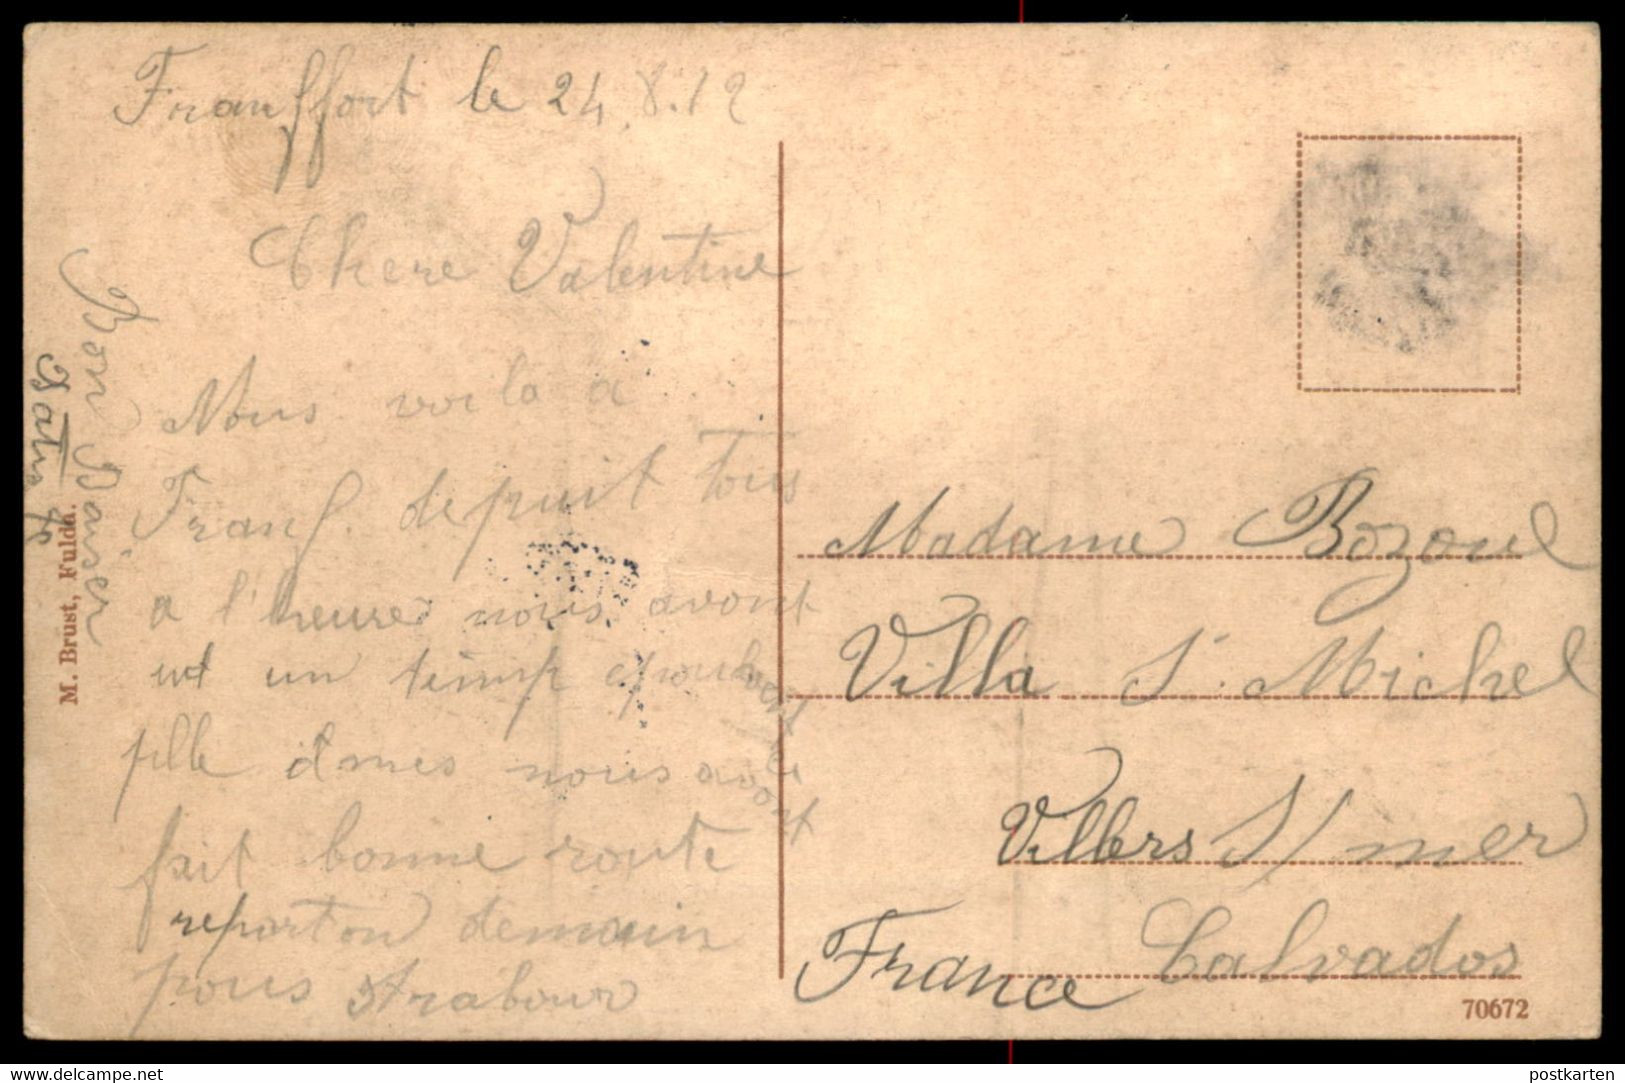 Franffort le 24.8.12
Chere Valentine
Nous voila a
Franf. depuit tous
a l'heure nous avont
un temp
nous avont
fait bonne route
reparton demain
pous Strabour
Bon Baiser
M. Brust, Fulda.
Madame Bozoul
Villa St. Michel
Villers S/mer
France Calvados
70672
www.delcampe.net
postkarten